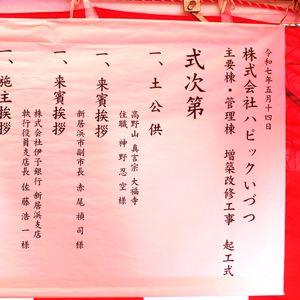 令和七年五月十四日
株式会社ハピックいづつ
主要棟・管理棟 増築改修工事 起工式
式次第
一、土公供
高野山 真言宗 大福寺
住職 神野忍空様
一、来賓挨拶
新居浜市副市長 赤尾禎司様
一、来賓挨拶
株式会社伊予銀行 新居浜支店
執行役員支店長 佐藤浩一様
一、施主挨拶